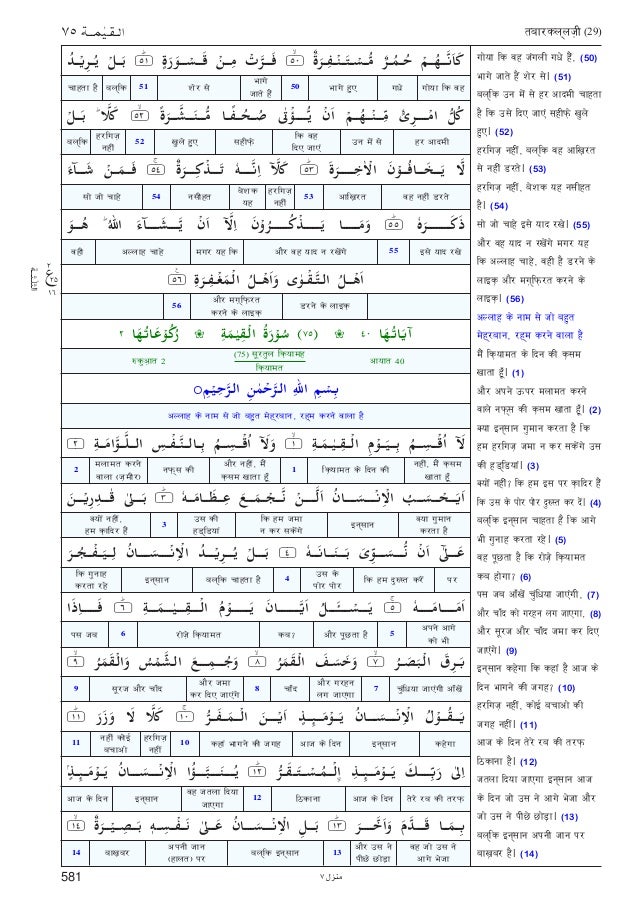 तबारकल्लजी (29)
القيٰمة ٧٥
كَاَنَّهُمْ حُمُرٌ مُّسْتَنْفِرَةٌ ۙ﴿٥٠﴾ فَرَّتْ مِنْ قَسْوَرَةٍ ؕ﴿٥١﴾ بَلْ يُرِيْدُ
गोया कि वह गधे भागे हुए 50 भागे जाते हैं शेर से 51 बल्कि चाहता है
كُلُّ امْرِئٍ مِّنْهُمْ اَنْ يُّؤْتٰى صُحُفًا مُّنَشَّرَةً ۙ﴿٥٢﴾ كَلَّا ؕ بَلْ
हर आदमी उन में से कि वह दिए जाएं सहीफ़े खुले हुए 52 हरगिज़ नहीं बल्कि
لَّا يَخَافُوْنَ الْاٰخِرَةَ ؕ﴿٥٣﴾ كَلَّاۤ اِنَّهٗ تَذْكِرَةٌ ۚ﴿٥٤﴾ فَمَنْ شَآءَ
वह नहीं डरते आख़िरत 53 हरगिज़ नहीं बेशक यह नसीहत 54 सो जो चाहे
ذَكَرَهٗ ؕ﴿٥٥﴾ وَمَا يَذْكُرُوْنَ اِلَّاۤ اَنْ يَّشَآءَ اللّٰهُ ؕ هُوَ
इसे याद रखे 55 और वह याद न रखेंगे मगर यह कि अल्लाह चाहे वही
اَهْلُ التَّقْوٰى وَاَهْلُ الْمَغْفِرَةِ ۠﴿٥٦﴾
डरने के लाइक़ और मग़्फ़िरत करने के लाइक़ 56
اٰيَاتُهَا ٤٠ ❀ (٧٥) سُوْرَةُ الْقِيٰمَةِ ❀ رُكُوْعَاتُهَا ٢
आयात 40 (75) सूरतुल क़ियामह क़ियामत रुकुआ़त 2
بِسْمِ اللهِ الرَّحْمٰنِ الرَّحِيْمِ ○
अल्लाह के नाम से जो बहुत मेहरबान, रहम करने वाला है
لَاۤ اُقْسِمُ بِيَوْمِ الْقِيٰمَةِ ۙ﴿١﴾ وَلَاۤ اُقْسِمُ بِالنَّفْسِ اللَّوَّامَةِ ؕ﴿٢﴾
नहीं, मैं क़सम खाता हूँ क़ियामत के दिन की 1 और नहीं, मैं क़सम खाता हूँ नफ़्स की मलामत करने वाला (ज़मीर) 2
اَيَحْسَبُ الْاِنْسَانُ اَلَّنْ نَّجْمَعَ عِظَامَهٗ ؕ﴿٣﴾ بَلٰى قٰدِرِيْنَ
क्या गुमान करता है इन्सान कि हम जमा न कर सकेंगे उस की हड्डियां 3 क्यों नहीं, हम क़ादिर हैं
عَلٰۤى اَنْ نُّسَوِّىَ بَنَانَهٗ ﴿٤﴾ بَلْ يُرِيْدُ الْاِنْسَانُ لِيَفْجُرَ
पर कि हम दुरुस्त करें उस के पोर पोर 4 बल्कि चाहता है इन्सान कि गुनाह करता रहे
اَمَامَهٗ ۚ﴿٥﴾ يَسْئَلُ اَيَّانَ يَوْمُ الْقِيٰمَةِ ؕ﴿٦﴾ فَاِذَا
अपने आगे को भी 5 और पूछता है कब? रोज़े क़ियामत 6 पस जब
بَرِقَ الْبَصَرُ ۙ﴿٧﴾ وَخَسَفَ الْقَمَرُ ۙ﴿٨﴾ وَجُمِعَ الشَّمْسُ وَالْقَمَرُ ۙ﴿٩﴾
चुंधिया जाएंगी आँखें 7 और गरहन लग जाएगा चाँद 8 और जमा कर दिए जाएंगे सूरज और चाँद 9
يَقُوْلُ الْاِنْسَانُ يَوْمَئِذٍ اَيْنَ الْمَفَرُّ ۚ﴿١٠﴾ كَلَّا لَا وَزَرَ ؕ﴿١١﴾
कहेगा इन्सान आज के दिन कहां भागने की जगह 10 हरगिज़ नहीं नहीं कोई बचाओ 11
اِلٰى رَبِّكَ يَوْمَئِذِ ۨالْمُسْتَقَرُّ ؕ﴿١٢﴾ يُنَبَّؤُا الْاِنْسَانُ يَوْمَئِذٍۭ
तेरे रब की तरफ़ आज के दिन ठिकाना 12 वह जतला दिया जाएगा इन्सान आज के दिन
بِمَا قَدَّمَ وَاَخَّرَ ؕ﴿١٣﴾ بَلِ الْاِنْسَانُ عَلٰى نَفْسِهٖ بَصِيْرَةٌ ۙ﴿١٤﴾
वह जो उस ने आगे भेजा और उस ने पीछे छोड़ा 13 बल्कि इन्सान अपनी जान (हालत) पर बाख़बर 14
गोया कि वह जंगली गधे हैं, (50)
भागे जाते हैं शेर से। (51)
बल्कि उन में से हर आदमी चाहता
है कि उसे दिए जाएं सहीफ़े खुले
हुए। (52)
हरगिज़ नहीं, बल्कि वह आख़िरत
से नहीं डरते। (53)
हरगिज़ नहीं, बेशक यह नसीहत
है। (54)
सो जो चाहे इसे याद रखे। (55)
और वह याद न रखेंगे मगर यह
कि अल्लाह चाहे, वही है डरने के
लाइक़ और मग़्फ़िरत करने के
लाइक़। (56)
अल्लाह के नाम से जो बहुत
मेहरबान, रहम करने वाला है
मैं क़ियामत के दिन की क़सम
खाता हूँ। (1)
और अपने ऊपर मलामत करने
वाले नफ़्स की क़सम खाता हूँ। (2)
क्या इन्सान गुमान करता है कि
हम हरगिज़ जमा न कर सकेंगे उस
की हड्डियां। (3)
क्यों नहीं? कि हम इस पर क़ादिर हैं
कि उस के पोर पोर दुरुस्त कर दें। (4)
बल्कि इन्सान चाहता है कि आगे
भी गुनाह करता रहे। (5)
वह पूछता है कि रोज़े क़ियामत
कब होगा? (6)
पस जब आँखें चुंधिया जाएंगी, (7)
और चाँद को गरहन लग जाएगा, (8)
और सूरज और चाँद जमा कर दिए
जाएंगे। (9)
इन्सान कहेगा कि कहां है आज के
दिन भागने की जगह? (10)
हरगिज़ नहीं, कोई बचाओ की
जगह नहीं। (11)
आज के दिन तेरे रब की तरफ़
ठिकाना है। (12)
जतला दिया जाएगा इन्सान आज
के दिन जो उस ने आगे भेजा और
जो उस ने पीछे छोड़ा। (13)
बल्कि इन्सान अपनी जान पर
बाख़बर है। (14)
٢
ع ٢٥
١٦
581
منزل ٧